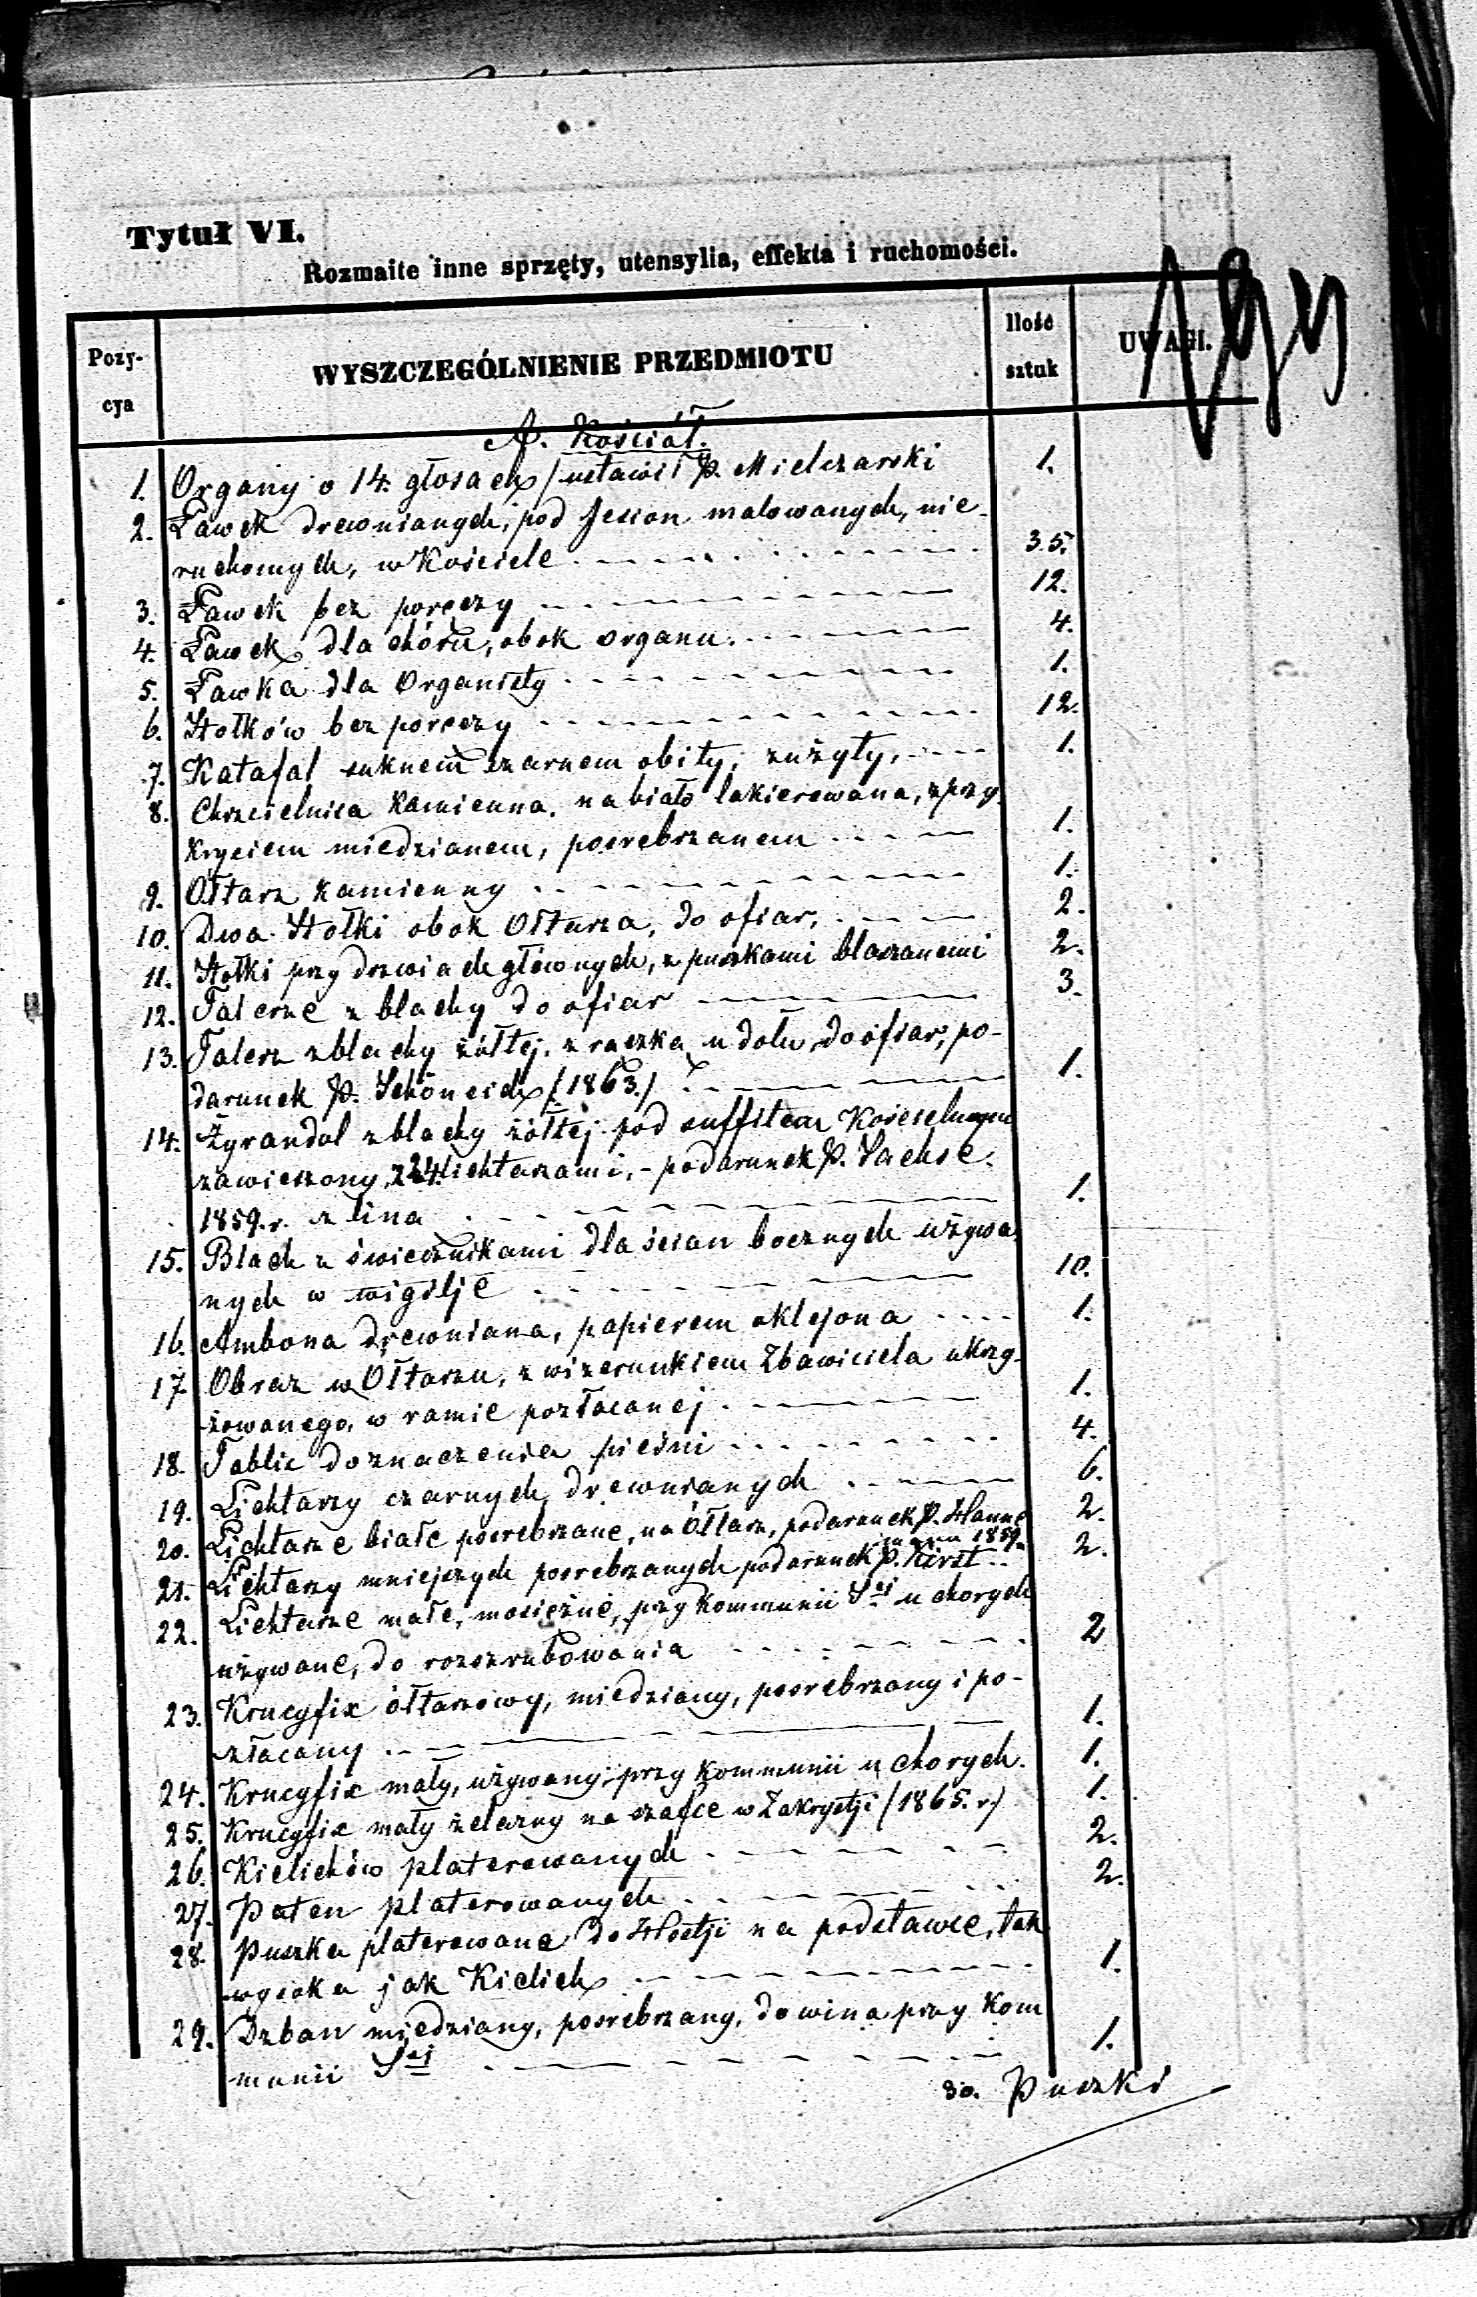 Tytuł VI.
Rozmaite inne sprzęty, utensylia, effekta i ruchomości.
Pozy-
cya
WYSZCZEGÓLNIENIE PRZEDMIOTU
Ilość
sztuk
UWAGI.
A. Kościół.
1. Organy o 14. głosach / ustawił P. Mielczarski 1.
2. Ławek drewnianych, pod Jesion malowanych, nie-
ruchomych, w Kościele 35.
3. Ławek bez poręczy 12.
4. Ławek dla chóru, obok organu 4.
5. Ławka dla Organisty 1.
6. Stołków bez poręczy 12.
7. Katafal suknem czarnem obity, zużyty, 1.
8. Chrzcielnica Kamienna, na biało lakierowana, z przy-
kryciem miedzianem, posrebrzanem 1.
9. Ołtarz Kamienny 1.
10. Dwa Stołki obok Ołtarza, do ofiar, 2.
11. Stołki przy drzwiach głównych, z puszkami blaszanemi 2.
12. Talerze z blachy do ofiar 3.
13. Talerz z blachy żółtej, z rączką u dołu, do ofiar, po-
darunek P. Schöneich /1863./ 1.
14. Żyrandol z blachy żółtej pod suffitem Kościelnym
zawieszony, z 24 lichtarzami, - podarunek P. Sachse.
1859. r. z liną 1.
15. Blach z świecznikami dla ścian bocznych używa-
nych w wigilje 10.
16. Ambona drewniana, papierem oklejona 1.
17. Obraz w Ołtarzu, z wizerunkiem Zbawiciela ukrzy-
żowanego, w ramie pozłacanej 1.
18. Tablic do znaczenia pieśni 4.
19. Lichtarzy czarnych drewnianych 6.
20. Lichtarze białe posrebrzane, na Ołtarz, podarunek P. Hanne 2.
1859.
21. Lichtarzy mniejszych posrebrzanych podarunek P. Kirst 2.
22. Lichtarze małe, mosiężne, przy Kommunii Sej u chorych
używane, do rozszrubowania 2
23. Krucyfix ołtarzowy, miedziany, posrebrzany i po-
złacany 1.
24. Krucyfix mały, używany przy Kommunii u chorych. 1.
25. Krucyfix mały żelazny na szafce w Zakrystji /1865. r./ 1.
26. Kielichów platerowanych 2.
27. Paten platerowanych 2.
28. Puszka platerowana do Hostji na podstawie, tak
wysoka jak Kielich 1.
29. Dzban miedziany, posrebrzany, do wina przy Kom
munii Sej 1.
30. Puszki